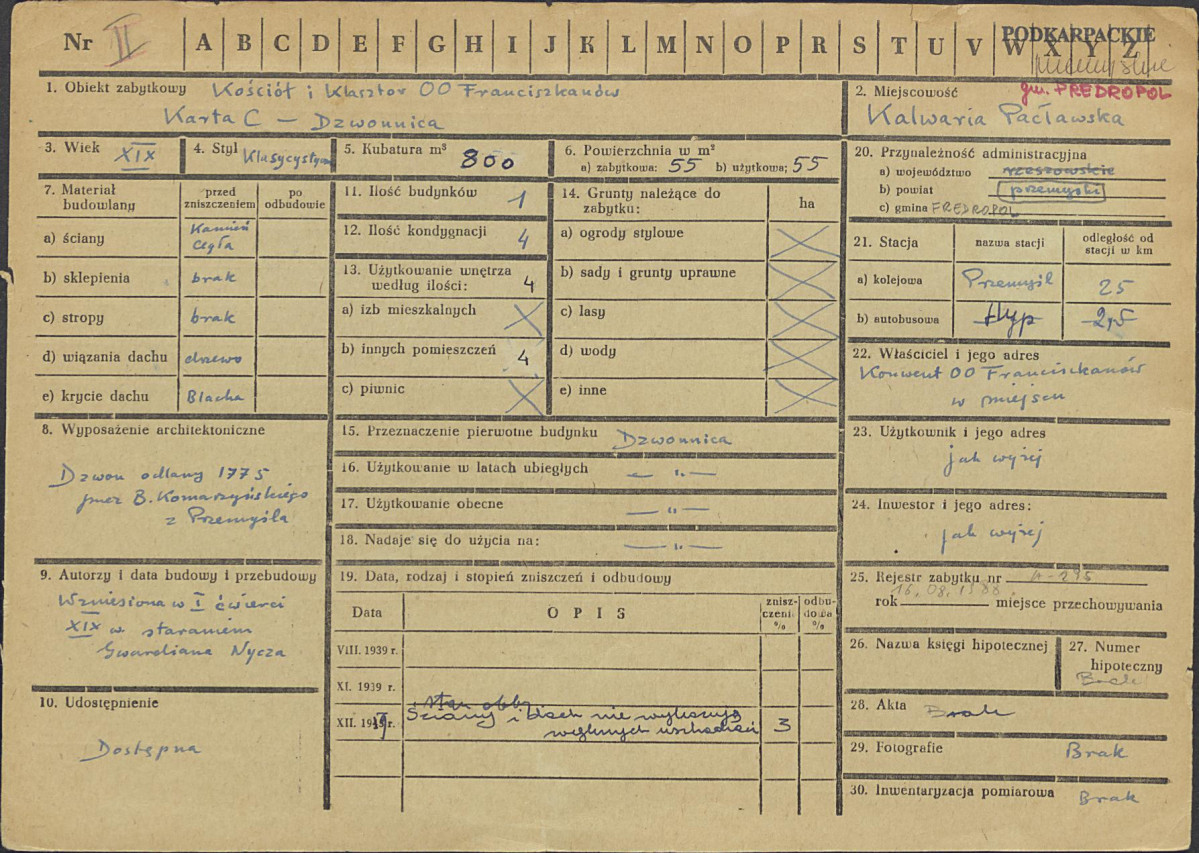 Nr II A B C D E F G H I J K L M N O P R S T U V W X Y Z
PODKARPACKIE
gm. FREDROPOL
1. Obiekt zabytkowy Kościół i Klasztor OO Franciszkanów
Karta C — Dzwonnica
2. Miejscowość
Kalwaria Pacławska
3. Wiek XIX
4. Styl Klasycystyczn
5. Kubatura m³ 800
6. Powierzchnia w m²
a) zabytkowa: 55 b) użytkowa: 55
7. Materiał budowlany
przed zniszczeniem
po odbudowie
a) ściany Kamień
Cegła
b) sklepienia brak
c) stropy brak
d) wiązania dachu drzewo
e) krycie dachu Blacha
8. Wyposażenie architektoniczne
Dzwon odlany 1775
przez B. Komarzyńskiego
z Przemyśla
9. Autorzy i data budowy i przebudowy
Wzniesiona w I ćwierci
XIX w staraniem
Gwardiana Nycza
10. Udostępnienie
Dostępna
11. Ilość budynków 1
12. Ilość kondygnacji 4
13. Użytkowanie wnętrza
według ilości: 4
a) izb mieszkalnych
b) innych pomieszczeń 4
c) piwnic
14. Grunty należące do
zabytku:
ha
a) ogrody stylowe
b) sady i grunty uprawne
c) lasy
d) wody
e) inne
15. Przeznaczenie pierwotne budynku Dzwonnica
16. Użytkowanie w latach ubiegłych — „ —
17. Użytkowanie obecne — „ —
18. Nadaje się do użycia na: — „ —
19. Data, rodzaj i stopień zniszczeń i odbudowy
Data
OPIS
znisz-
czeni
%
odbu-
dowa
%
VIII. 1939 r.
XI. 1939 r.
stan obby
XII. 19 r. Ściany i dach nie wykazują
uszkodzeń 3
20. Przynależność administracyjna
a) województwo rzeszowskie
b) powiat przemyski
c) gmina FREDROPOL
21. Stacja
nazwa stacji
odległość od
stacji w km
a) kolejowa Przemyśl 25
b) autobusowa Hyp 2,5
22. Właściciel i jego adres
Konwent OO Franciszkanów
w miejscu
23. Użytkownik i jego adres
jak wyżej
24. Inwestor i jego adres:
jak wyżej
25. Rejestr zabytku nr A-295
16.08.1988
rok miejsce przechowywania
26. Nazwa księgi hipotecznej
27. Numer
hipoteczny
Brak
28. Akta Brak
29. Fotografie Brak
30. Inwentaryzacja pomiarowa Brak